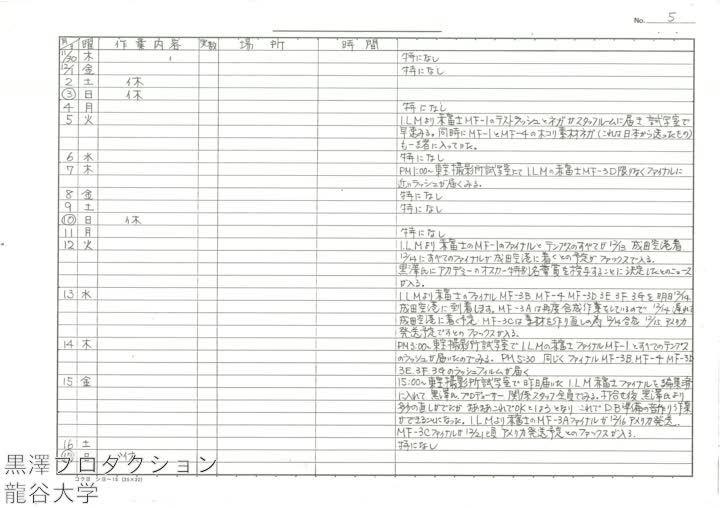 No. 5
月 日 曜 作業内容 実数 場所 時間
11/30 木 特になし
12/1 金 特になし
2 土 休
3 日 休
4 月 特になし
5 火 I.L.MよりMF-1のテストラッシュとネガがスタッフルームに届き 試写室で
早速みる。同時にMF-1とMF-4のホコリ素材ネガ(これは日本から送ったもの)
も一緒に入ってた。
6 水 特になし
7 木 PM1:00~東宝撮影所試写室にてI.L.Mの赤富士MF-3D限りなくファイナルに
近いラッシュが届くみる。
8 金 特になし
9 土 特になし
10 日 休
11 月 特になし
12 火 I.L.Mより赤富士のMF-1のファイナルとテンプクのすべてが12/13 成田空港着
12/14にすべてのファイナルが成田空港に着くとの予定がファックスで入る。
黒澤氏にアカデミーのオスカー特別名誉賞を授与することに決定したとのニュース
が入る。
13 水 I.L.Mより赤富士のファイナルMF-3B MF-4 MF-3D 3E 3F 3Gを明日12/14
成田空港に到着します。MF-3Aは再度合成作業をしているので12/14 遅れる
成田空港に着く予定 MF-3Cは素材を作り直しの為 12/14合成 12/15 アメリカ
発送予定ですとのファックスが入る。
14 木 PM3:00~東宝撮影所試写室でI.L.Mの赤富士ファイナルMF-1とすべてのテンプク
のラッシュが届いたのでみる。PM5:30 同じくファイナルMF-3B.MF-4 MF-3D
3E.3F.3Gのラッシュフィルムが届く
15 金 15:00~東宝撮影所試写室で昨日届いたI.L.M赤富士ファイナルを編集時
に入れて黒澤さん、プロデューサー 関係スタッフ全員でみる。打合せ後 黒澤氏より
多少の直しがでたが まあまあこれでOKとしようとなり これでD.B準備の音作り作業
ができることになった。I.L.MよりMF-3Aファイナルが12/16アメリカ発送
MF-3Cファイナルが アメリカ発送予定とのファックスが入る。
16 土 特になし
日 休
コクヨ シヨ-15 (25×32)
黒澤プロダクション
龍谷大学